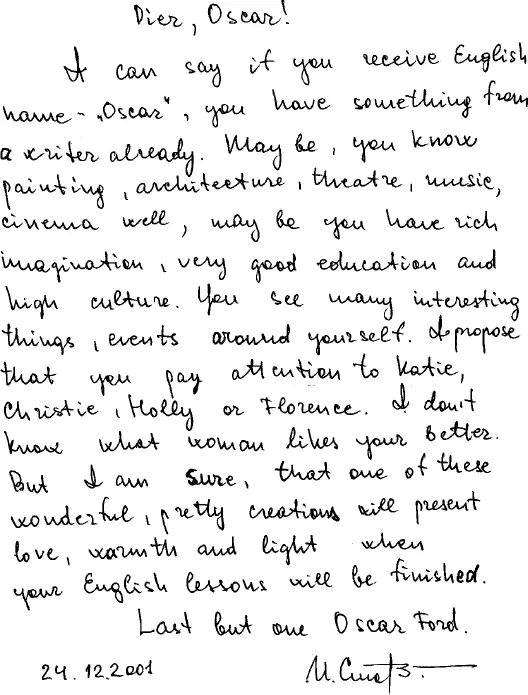 Dier, Oscar!
I can say if you receive English
name - „Oscar", you have something from
a writer already. May be, you know
painting, architecture, theatre, music,
cinema well, may be you have rich
imagination, very good education and
high culture. You see many interesting
things, events around yourself. I propose
that you pay attention to Katie,
Christie, Holly or Florence. I don't
know what woman likes your better.
But I am sure, that one of these
wonderful, pretty creations will present
love, warmth and light when
your English lessons will be finished.
Last but one Oscar Ford.
24.12.2001